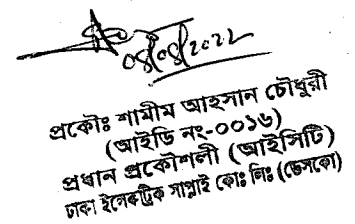 ০৪/০৪/২০২২
প্রকৌঃ শামীম আহসান চৌধুরী
(আইডি নং-০০১৬)
প্রধান প্রকৌশলী (আইসিটি)
ঢাকা ইলেকট্রিক সাপ্লাই কোঃ লিঃ (ডেসকো)